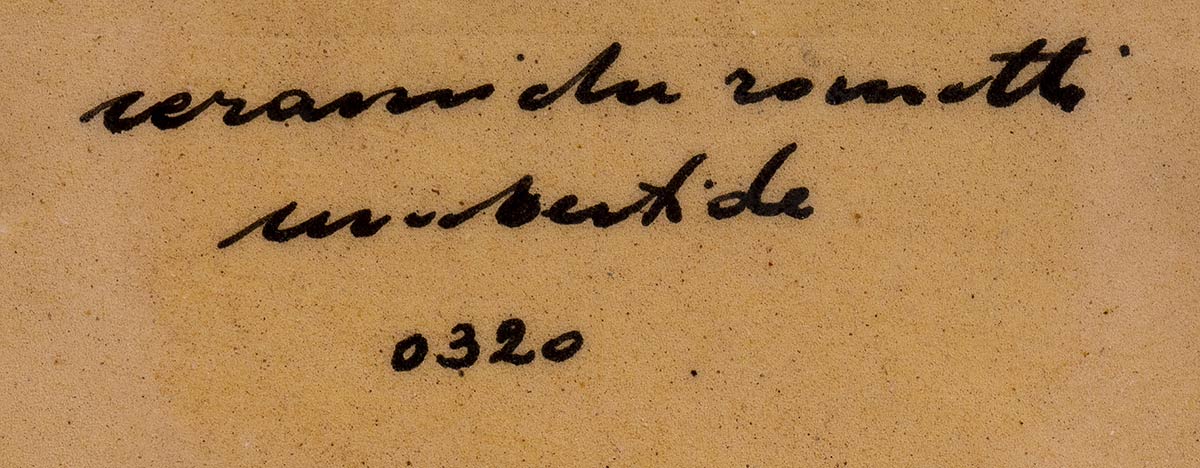 ceramiche rometti
umbertide
0320